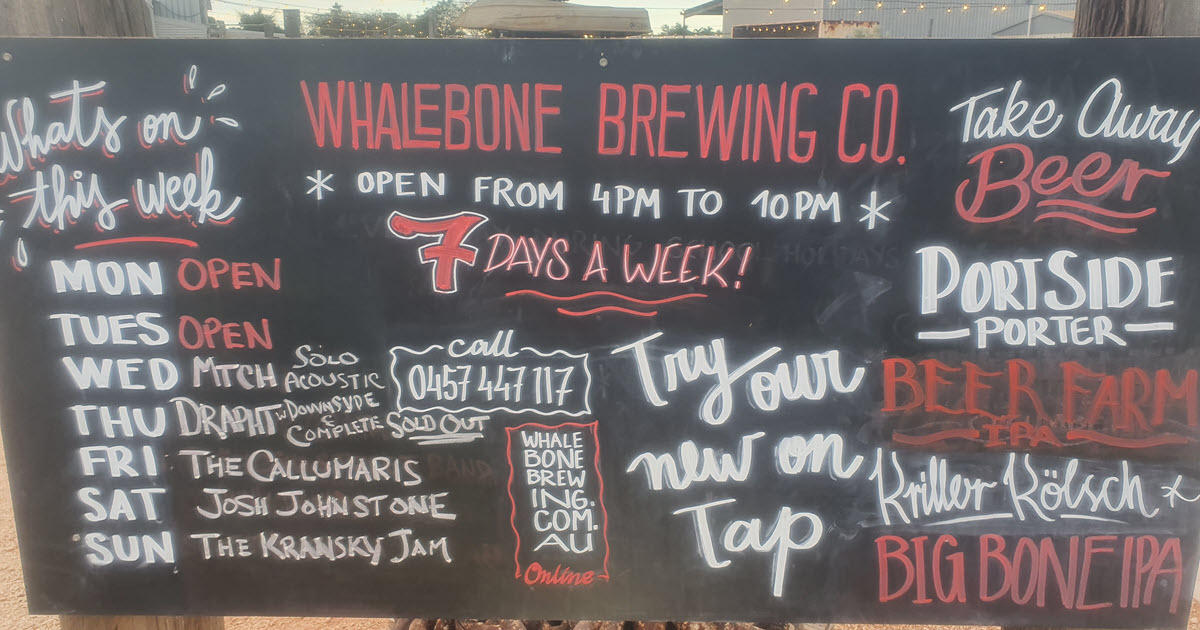 Whats on
this week
MON OPEN
TUES OPEN
WED MTCH SOLO ACOUSTIC
THU DRAPHT W DOWNSYDE & COMPLETE SOLD OUT
FRI THE CALLUMARIS
SAT JOSH JOHNSTONE
SUN THE KRANSKY JAM
WHALEBONE BREWING CO.
* OPEN FROM 4PM TO 10PM *
7 DAYS A WEEK!
call
0457 447 117
WHALE
BONE
BREW
ING.
COM.
AU
Online
Try our
new on
Tap
Take Away
Beer
PORTSIDE
PORTER
BEER FARM
IPA
Kriller Kölsch *
BIG BONE IPA